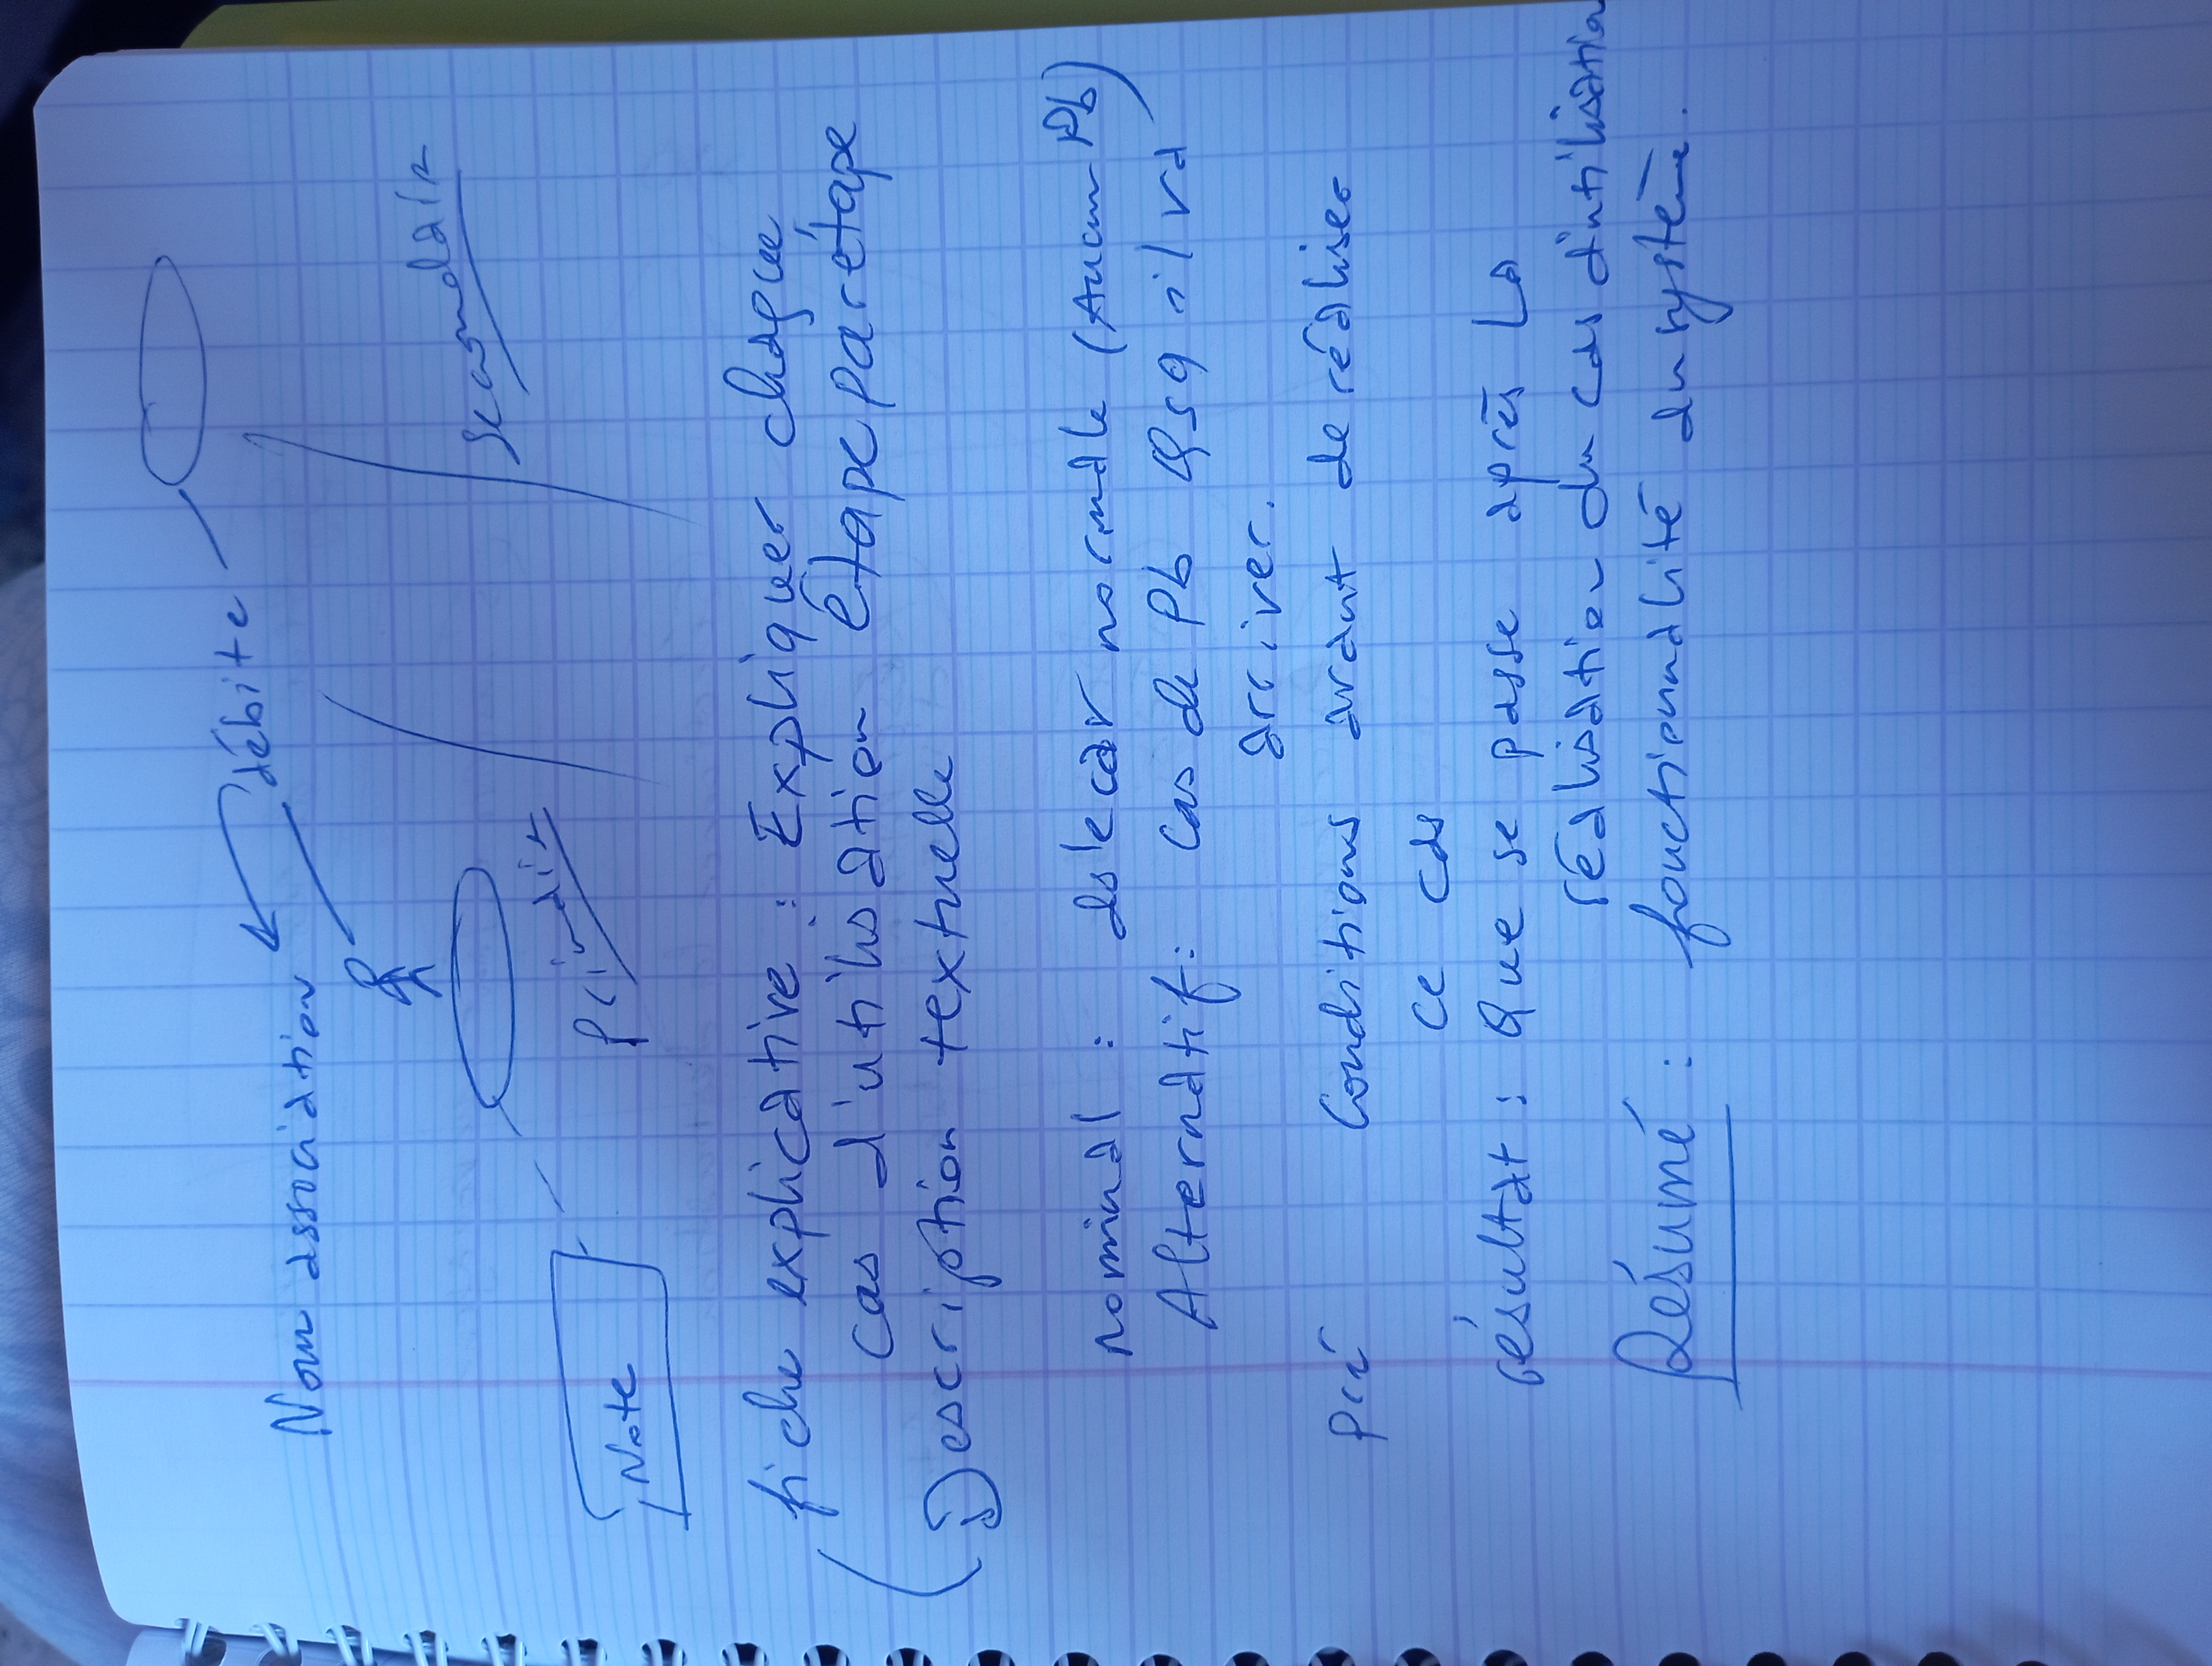 Nom association
débite
Note
principale
Secondaire
fiche explicative : Expliquer chaque
cas d'utilisation étape par étape
Description textuelle
nominal : ds le cas normale (Aucun Pb)
Alternatif : Cas de Pb qsq il va
arriver.
pré Conditions avant de réaliser
ce cas
résultat : Que se passe après la
réalisation du cas d'utilisation
Résumé : fonctionnalité du système.